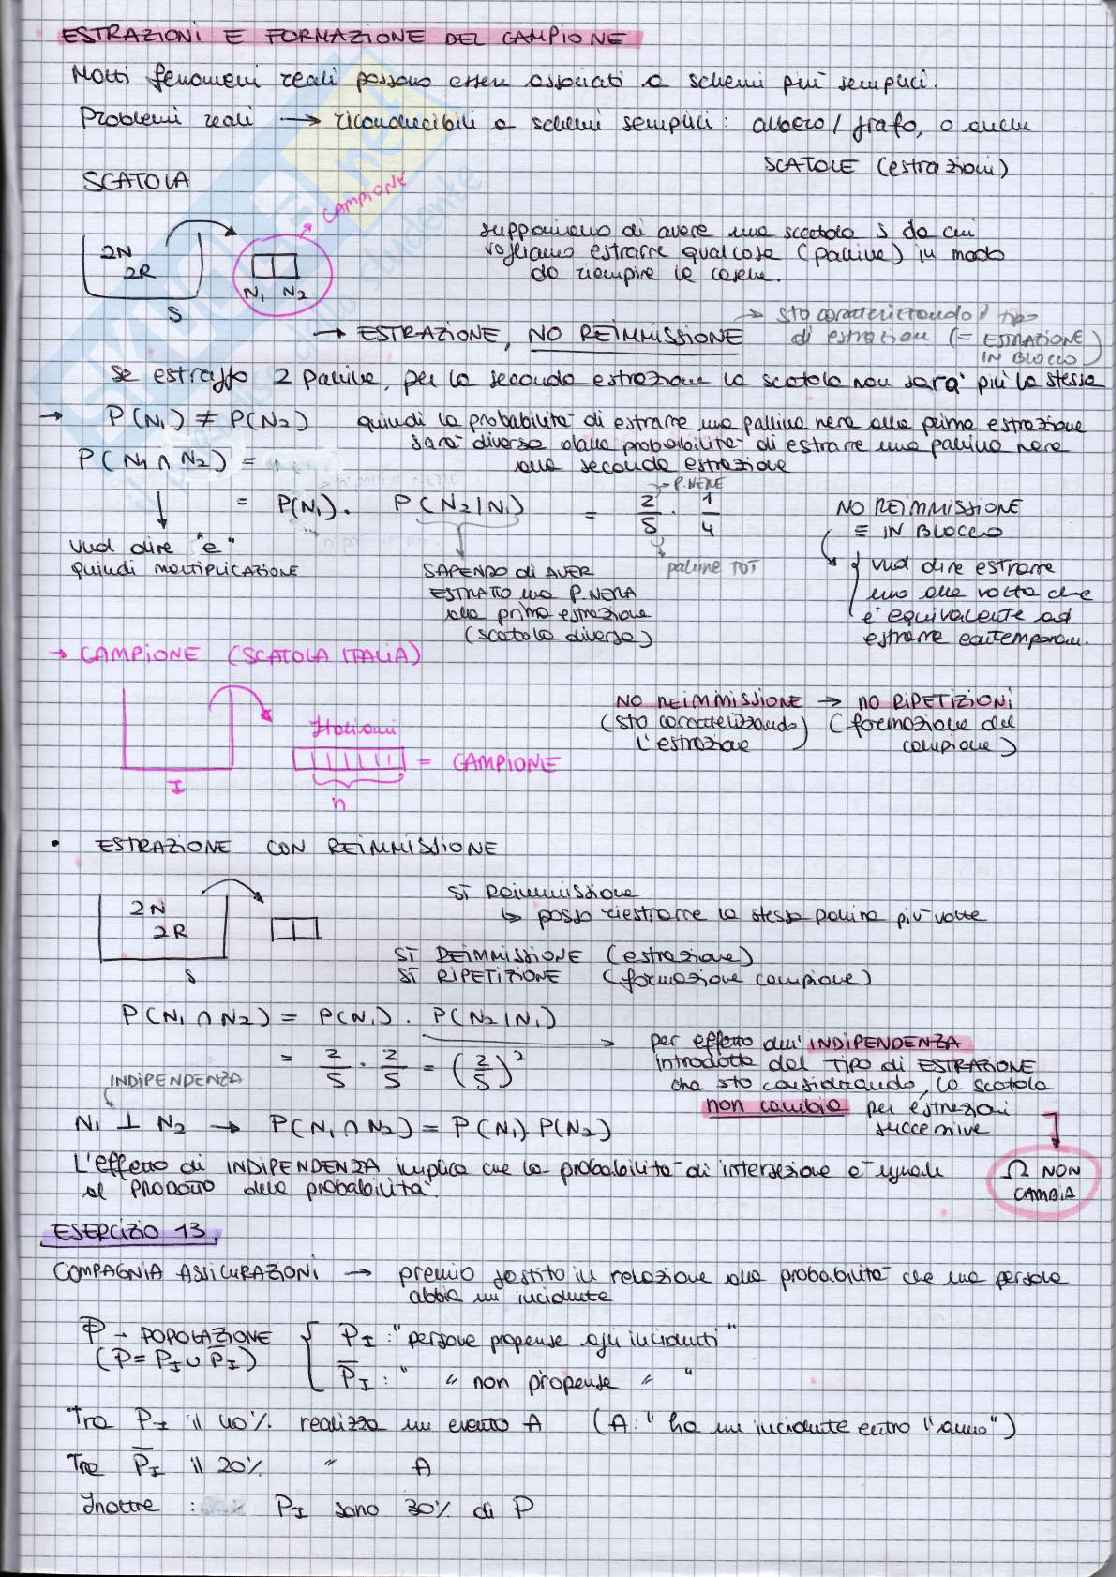 ESTRAZIONI E FORMAZIONE DEL CAMPIONE
Molti fenomeni reali possono essere associati a schemi più semplici.
Problemi reali → riconducibili a schemi semplici: albero / grafo, o anche
SCATOLE (estrazioni)
SCATOLA
CAMPIONE
2N
2R
S
N1 N2
supponiamo di avere una scatola S da cui
vogliamo estrarre qualcosa (palline) in modo
da riempire le caselle.
→ ESTRAZIONE, NO REIMMISSIONE
→ sto caratterizzando il tipo
di estrazione (= ESTRAZIONE
IN BLOCCO)
se estraggo 2 palline, per la seconda estrazione la scatola non sarà più la stessa
→ P(N1) ≠ P(N2) quindi la probabilità di estrarre una pallina nera alla prima estrazione
sarà diversa dalla probabilità di estrarre una pallina nera
alla seconda estrazione
P(N1 ∩ N2) =
= P(N1) · P(N2|N1) = 2/5 · 1/4
→ P. NERE
palline TOT
vuol dire "e"
quindi MOLTIPLICAZIONE
SAPENDO di AVER
ESTRATTO una P. NERA
alla prima estrazione
(scatola diversa)
NO REIMMISSIONE
= IN BLOCCO
vuol dire estrarre
una alla volta che
è equivalente ad
estrarre contemporan.
→ CAMPIONE (SCATOLA ITALIA)
I
Italiani
= CAMPIONE
n
NO REIMMISSIONE → NO RIPETIZIONI
(sto caratterizzando l'estrazione) (formazione del campione)
• ESTRAZIONE CON REIMMISSIONE
2N
2R
S
SÌ Reimmissione
↳ posso riestrarre la stessa pallina più volte
SÌ REIMMISSIONE (estrazione)
SÌ RIPETIZIONE (formazione campione)
P(N1 ∩ N2) = P(N1) · P(N2|N1)
= 2/5 · 2/5 = (2/5)²
→ per effetto dell'INDIPENDENZA
introdotta dal TIPO di ESTRAZIONE
che sto considerando, la scatola
non cambia per estrazioni
successive
Ω NON
CAMBIA
INDIPENDENZA
N1 ⊥ N2 → P(N1 ∩ N2) = P(N1) P(N2)
L'effetto di INDIPENDENZA implica che la probabilità di intersezione è uguale
al PRODOTTO delle probabilità.
ESERCIZIO 13.
COMPAGNIA ASSICURAZIONI → premio gestito in relazione alla probabilità che una persona
abbia un incidente
P → POPOLAZIONE { PI : "persone propense agli incidenti"
(P = PI ∪ P̅I)
P̅I : " " non propense " "
Tra PI il 40% realizza un evento A (A: "ha un incidente entro l'anno")
Tra P̅I il 20% " A
Inoltre : PI sono 30% di P